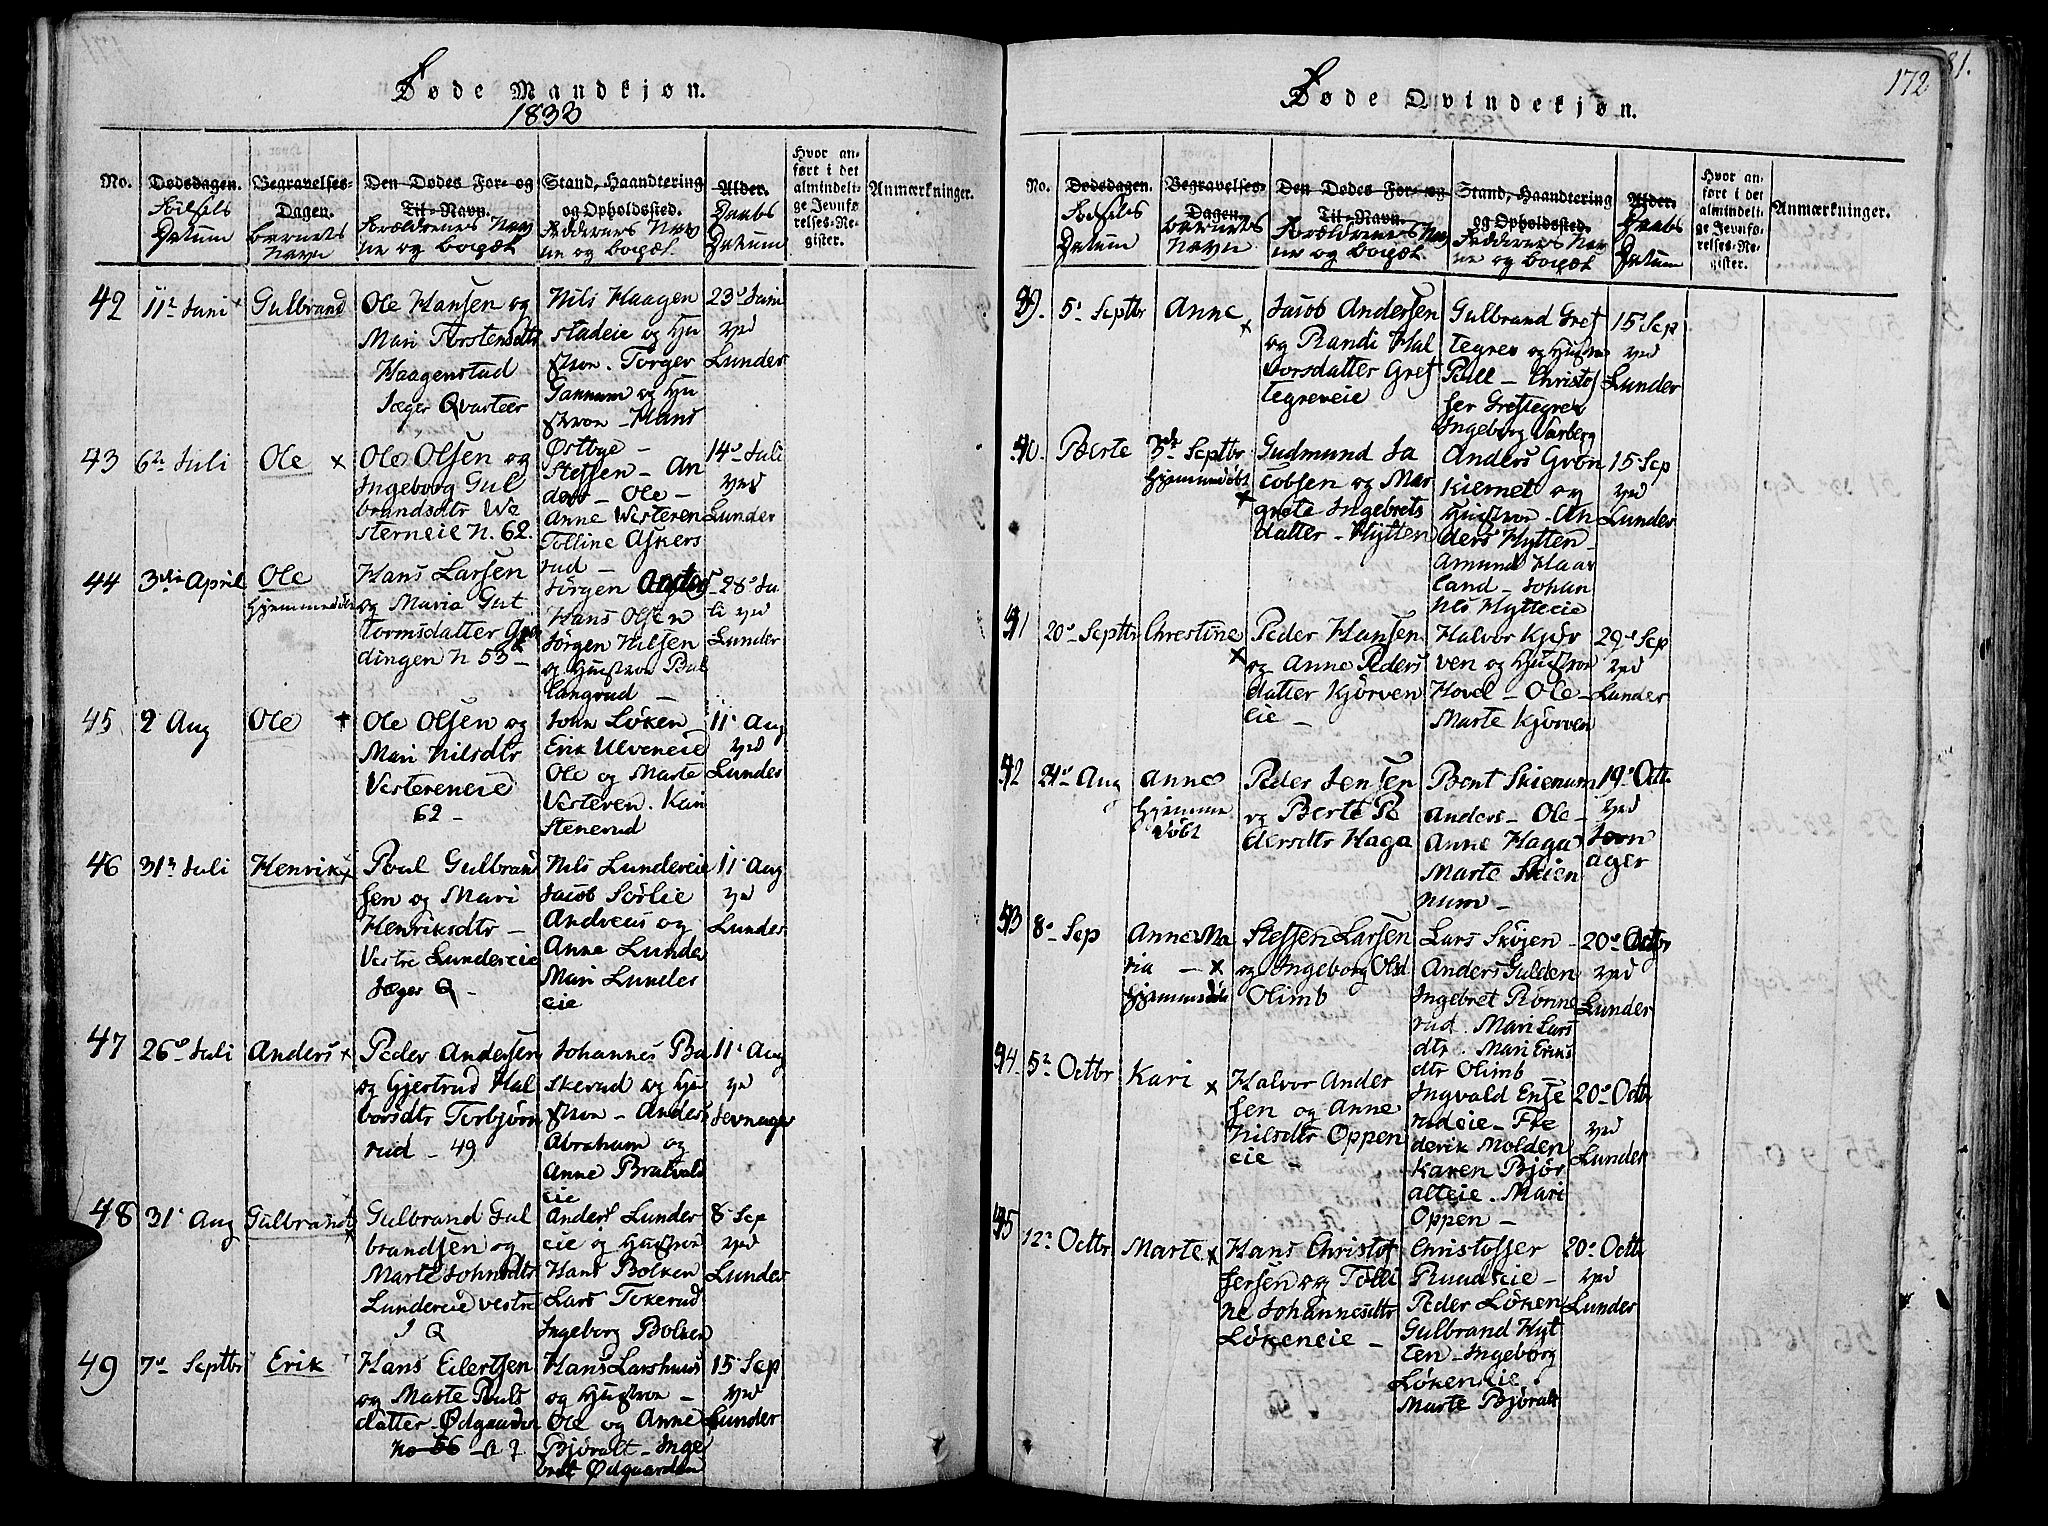 Føde Mandkjøn.
1833
No.
Dødsdagen.
Fødsels
Datum
Begravelses-
Dagen.
Barnets
Navn
Den Dødes For- og
Til-Navn.
Forældrenes Nav
ne og Bopæl
Stand, Haandtering
og Opholdssted.
Faddernes Nav
ne og Bopæl.
Alder.
Daabs
Datum
Hvor an-
ført i det
almindeli-
ge Jevnfø-
relses-Re-
gister.
Anmærkninger.
42
11 Juni
Gulbrand
Ole Hansen og
Mari Torstensdtr
Haagenstad
Jæger Qvarteer
Nils Haagen
stadeie og Hu
stroe. Torger
Gannum og Hu
stroe - Hans
Østbye -
23 Juni
ved
Lunder
43
6 Juli
Ole
Ole Olsen og
Ingeborg Gul
brandsdtr We
sterneie N. 62.
Steffen - An
ders - Ole -
Anne Westeren
Tolline Askers
rud -
14 Juli
ved
Lunder
44
3die April
Ole
Hjemmedøbt
Hans Larsen
og Maria Gut
tormsdatter
dingen N 53 -
Jørgen
Hans Olsen
Jørgen Nilsen
og Hustroe Bul
langrud -
28 Ju
li ved
Lunder
45
2 Aug
Ole
Ole Olsen og
Mari Nilsdtr
Vestereneie
62 -
John Løken
Erik Ulveneie
Ole og Marte
Vesteren. Kari
Stenerud
11 Aug
ved
Lunder
46
31 Juli
Henrik
Poul Gulbrand
sen og Mari
Henriksdtr -
Vestre Lundereie
Jæger Q -
Nils Lundereie
Jacob Sørlie
Andreas og
Anne Lunder
Mari Lunder
eie
11 Aug
ved
Lunder
47
26 Juli
Anders
Peder Andersen
og Gjertrud Hal
vorsdtr Torbjørn
rud - 49
Johannes Ba
skerud og Hu
stroe - Anders
Abraham og
Anne Bratvald
eie
11 Aug
ved
Jevnager
48
31 Aug
Gulbrand
Gulbrand Gul
brandsen og
Marte Johnsdtr
Lundereie vestre
J Q
Anders Lunder
eie og Hustroe
Hans Bolken
Lars Tokerud
Ingeborg Bolken
8 Sep
ved
Lunder
49
7 Septbr
Erik
Hans Eilertsen
og Marte Pouls
datter - Ødgaarden
No 56 -
Hans Larshuus
og Hustroe -
Ole og Anne
Bjøralt - Inge
bret Ødgaarden
15 Sep
ved
Lunder
Føde Qvindekjøn.
172
81.
No.
Dødsdagen.
Fødsels
Datum
Begravelses-
Dagen.
Barnets
Navn
Den Dødes For- og
Til-Navn.
Forældrenes Nav
ne og Bopæl.
Stand, Haandtering
og Opholdssted.
Faddernes Nav
ne og Bopæl
Alder.
Daabs
Datum
Hvor an-
ført i det
almindeli-
ge Jevnfø-
relses-Re-
gister.
Anmærkninger.
39.
5 Septbr
Anne
Jacob Andersen
og Randi Hal
vorsdatter Gref
tegreveie
Gulbrand Gref
tegrev og Hustroe
Pall - Christof
fer Greftegrev
Ingeborg Varberg
15 Sep
ved
Lunder
40.
Berte
3de Septbr
Hjemmedøbt
Gudmund Ja
cobsen og Mar
grete Ingebrets
datter - Hytten
Anders Grøn
kiernet og
Hustroe. An
ders Hytten -
Amund Haar
land - Johan
nes Hytteeie
15 Sep
ved
Lunder
41
20 Septbr
Christine
Peder Hansen
og Anne Peders
datter Kjørven
eie -
Halvor Kjør
ven og Hustroe
Hovel - Ole -
Marte Kjørven
29 Sep
ved
Lunder
42
24 Aug
Anne
Hjemme
døbt
Peder Jensen
og Berte Pe
dersdtr Haga
Bent Skienum
Anders - Ole -
Anne Haga
Marte Skien
num -
19 Octb
ved
Jevn
ager
43
8 Sep
Anne Ma
ria -
Hjemmedøbt
Steffen Larsen
og Ingeborg Olsd
Olimb
Lars Skøjen -
Anders Gulden
Ingebret Rønne
rud. Mari Lars
dtr. Mari Eriks
dtr Olimb
20 Octbr
ved
Lunder
44.
5 Octbr
Kari
Halvor Ander
sen og Anne
Nilsdtr Oppen
eie -
Ingvald Ense
rudeie - Fre
derik Molden
Karen Bjør
alteie. Mari
Oppen -
20 Octb
ved
Lunder
45
12 Octbr
Marte
Hans Christof
fersen og Tolli
ne Johannesdtr
Løkeneie -
Christoffer
Ruudseie -
Peder Løken
Gulbrand Hyt
ten - Ingeborg
Løkeneie.
Marte Bjøralt
20 Octb
ved
Lunder